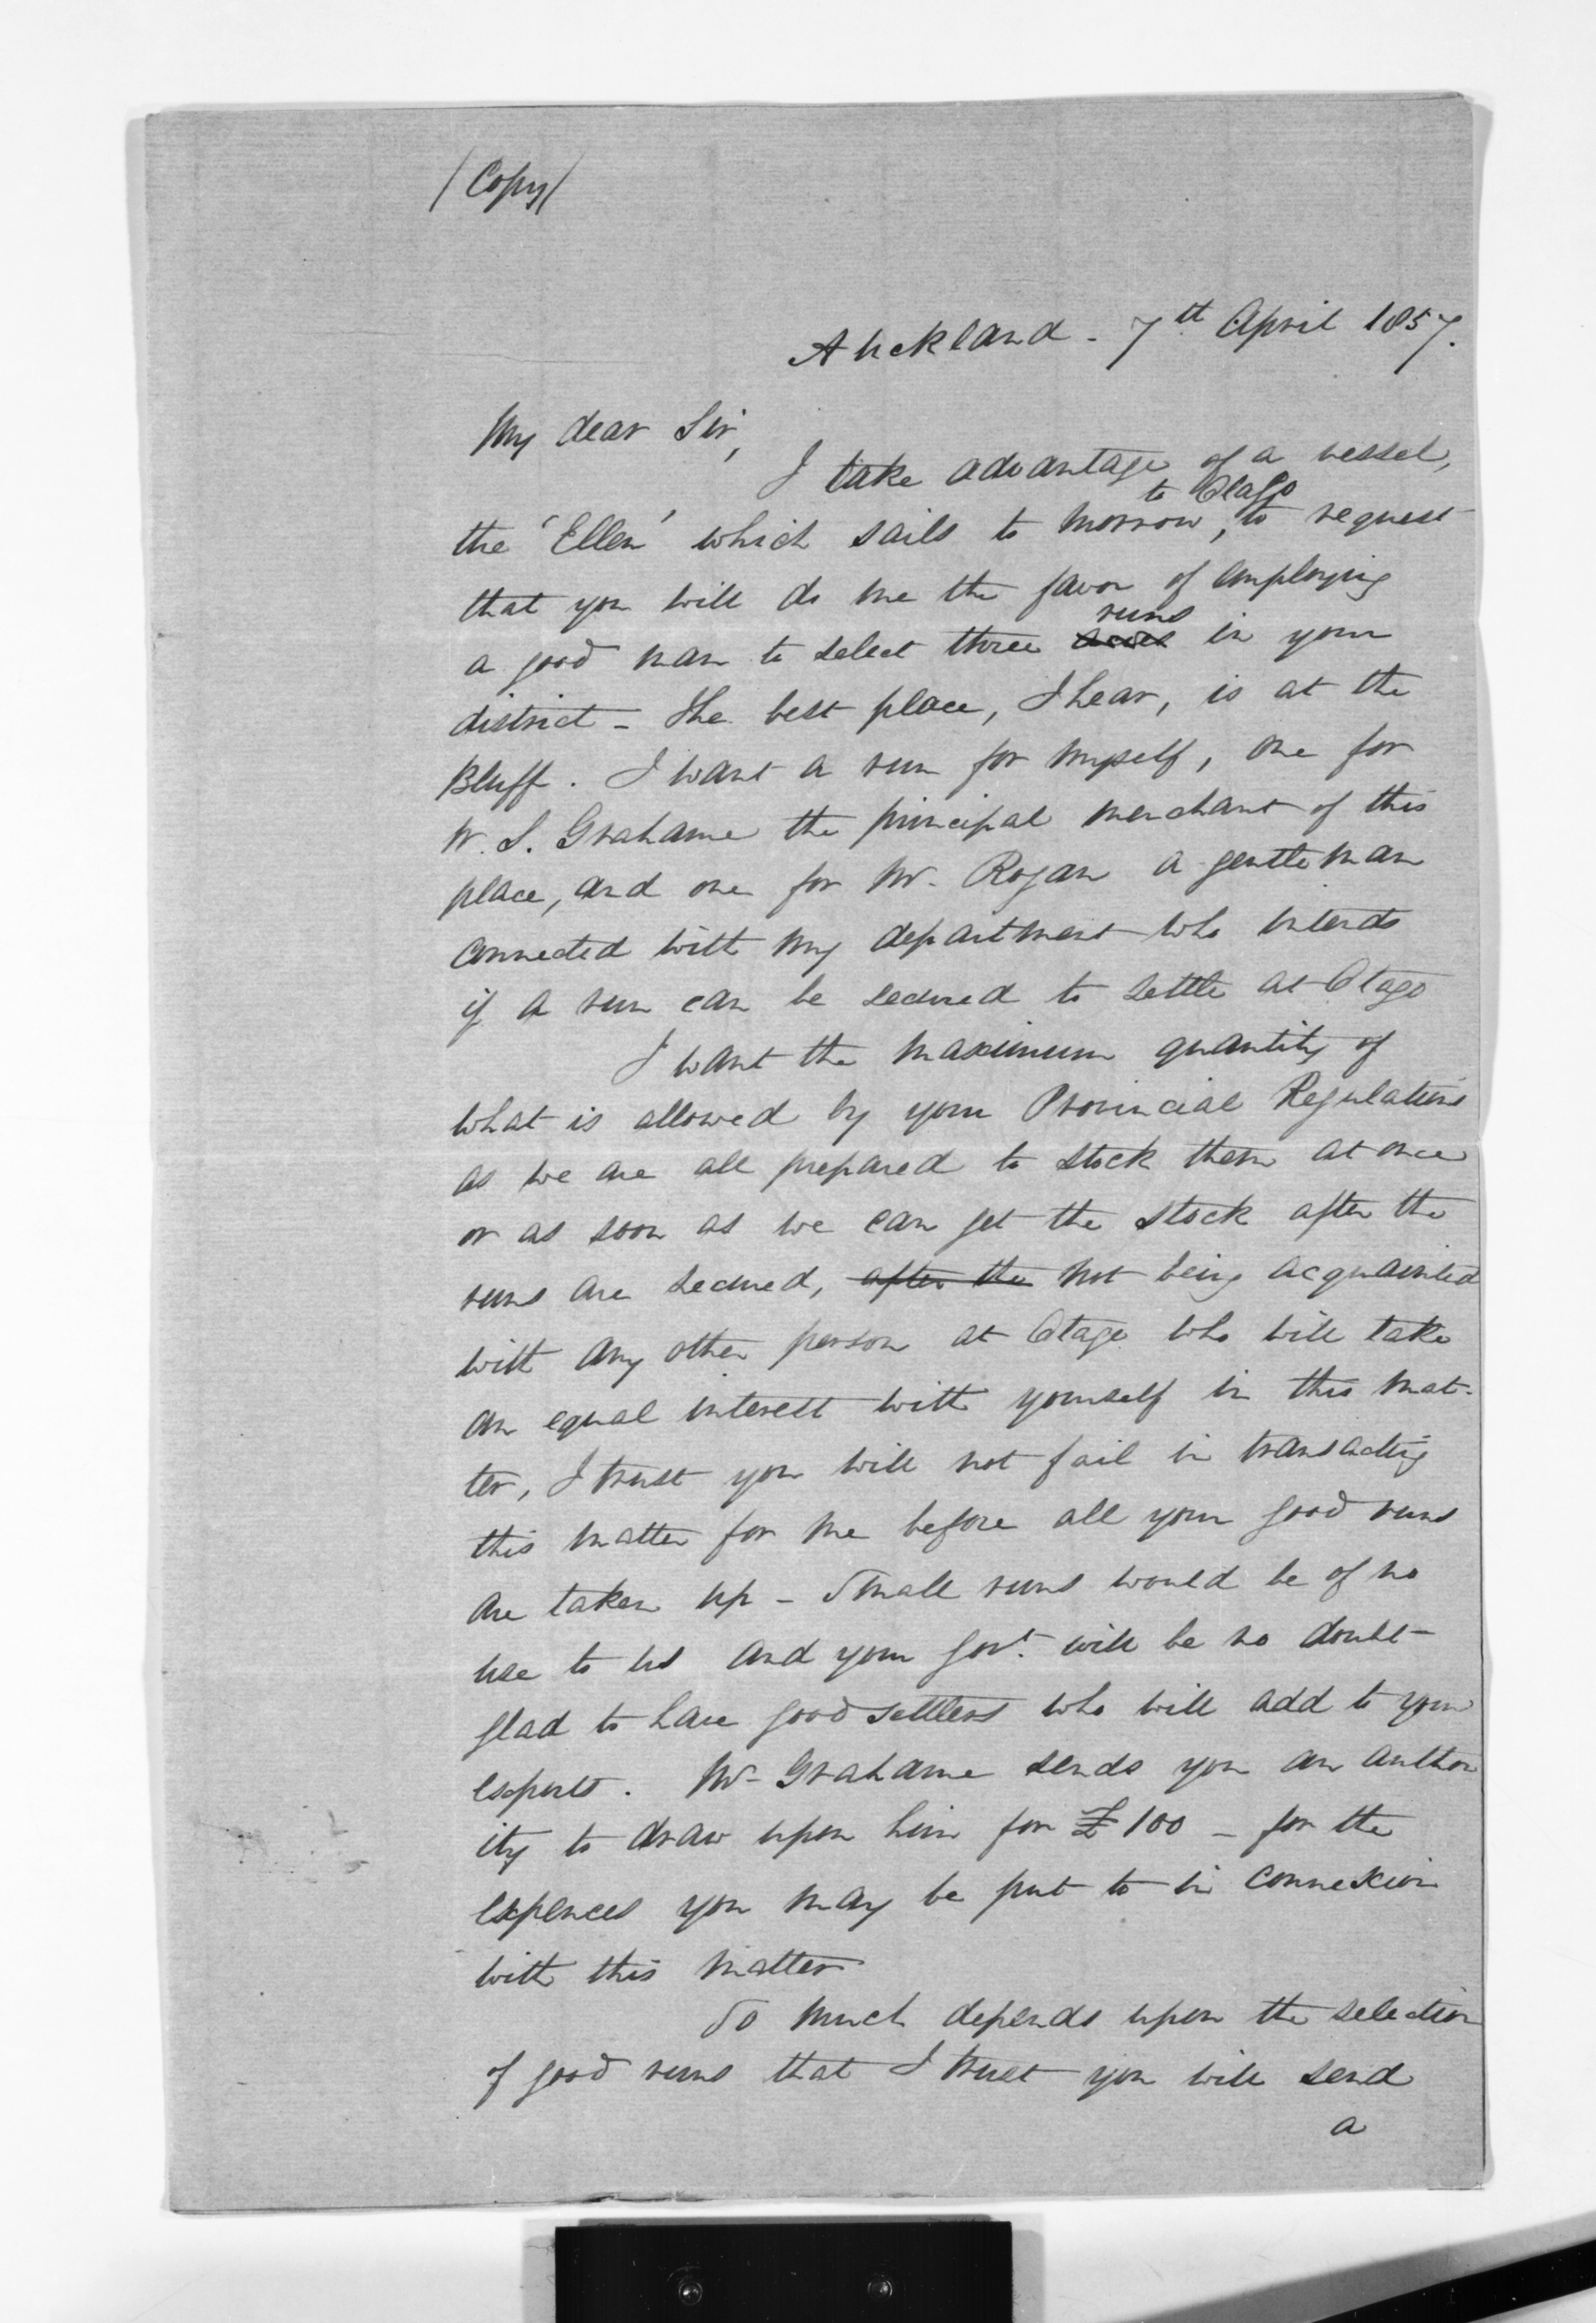 (Copy)
Auckland - 7th April 1857.
My dear Sir,
I take advantage of a vessel,
to Otago
the 'Ellen' which sails to morrow, to request
that you will do me the favor of employing
runs
a good man to select three in your
district - The best place, I hear, is at the
Bluff. I want a run for myself, one for
W. S. Grahame the principal merchant of this
place, and one for Mr. Rogan a gentleman
connected with my department who intends
if a run can be secured to settle at Otago
I want the maximum quantity of
what is allowed by your Provincial Regulations
as we are all prepared to stock them at once
or as soon as we can get the stock after the
runs are secured, after the not being acquainted
with any other person at Otago who will take
an equal interest with yourself in this mat-
ter, I trust you will not fail in transacting
this matter for me before all your good runs
are taken up - Small runs would be of no
use to us and your Govt. will be no doubt
glad to have good settlers who will add to your
exports. Mr. Grahame sends you an author
ity to draw upon him for £100 - for the
expences you may be put to in connexion
with this matter
So much depends upon the selection
of good runs that I trust you will send
a